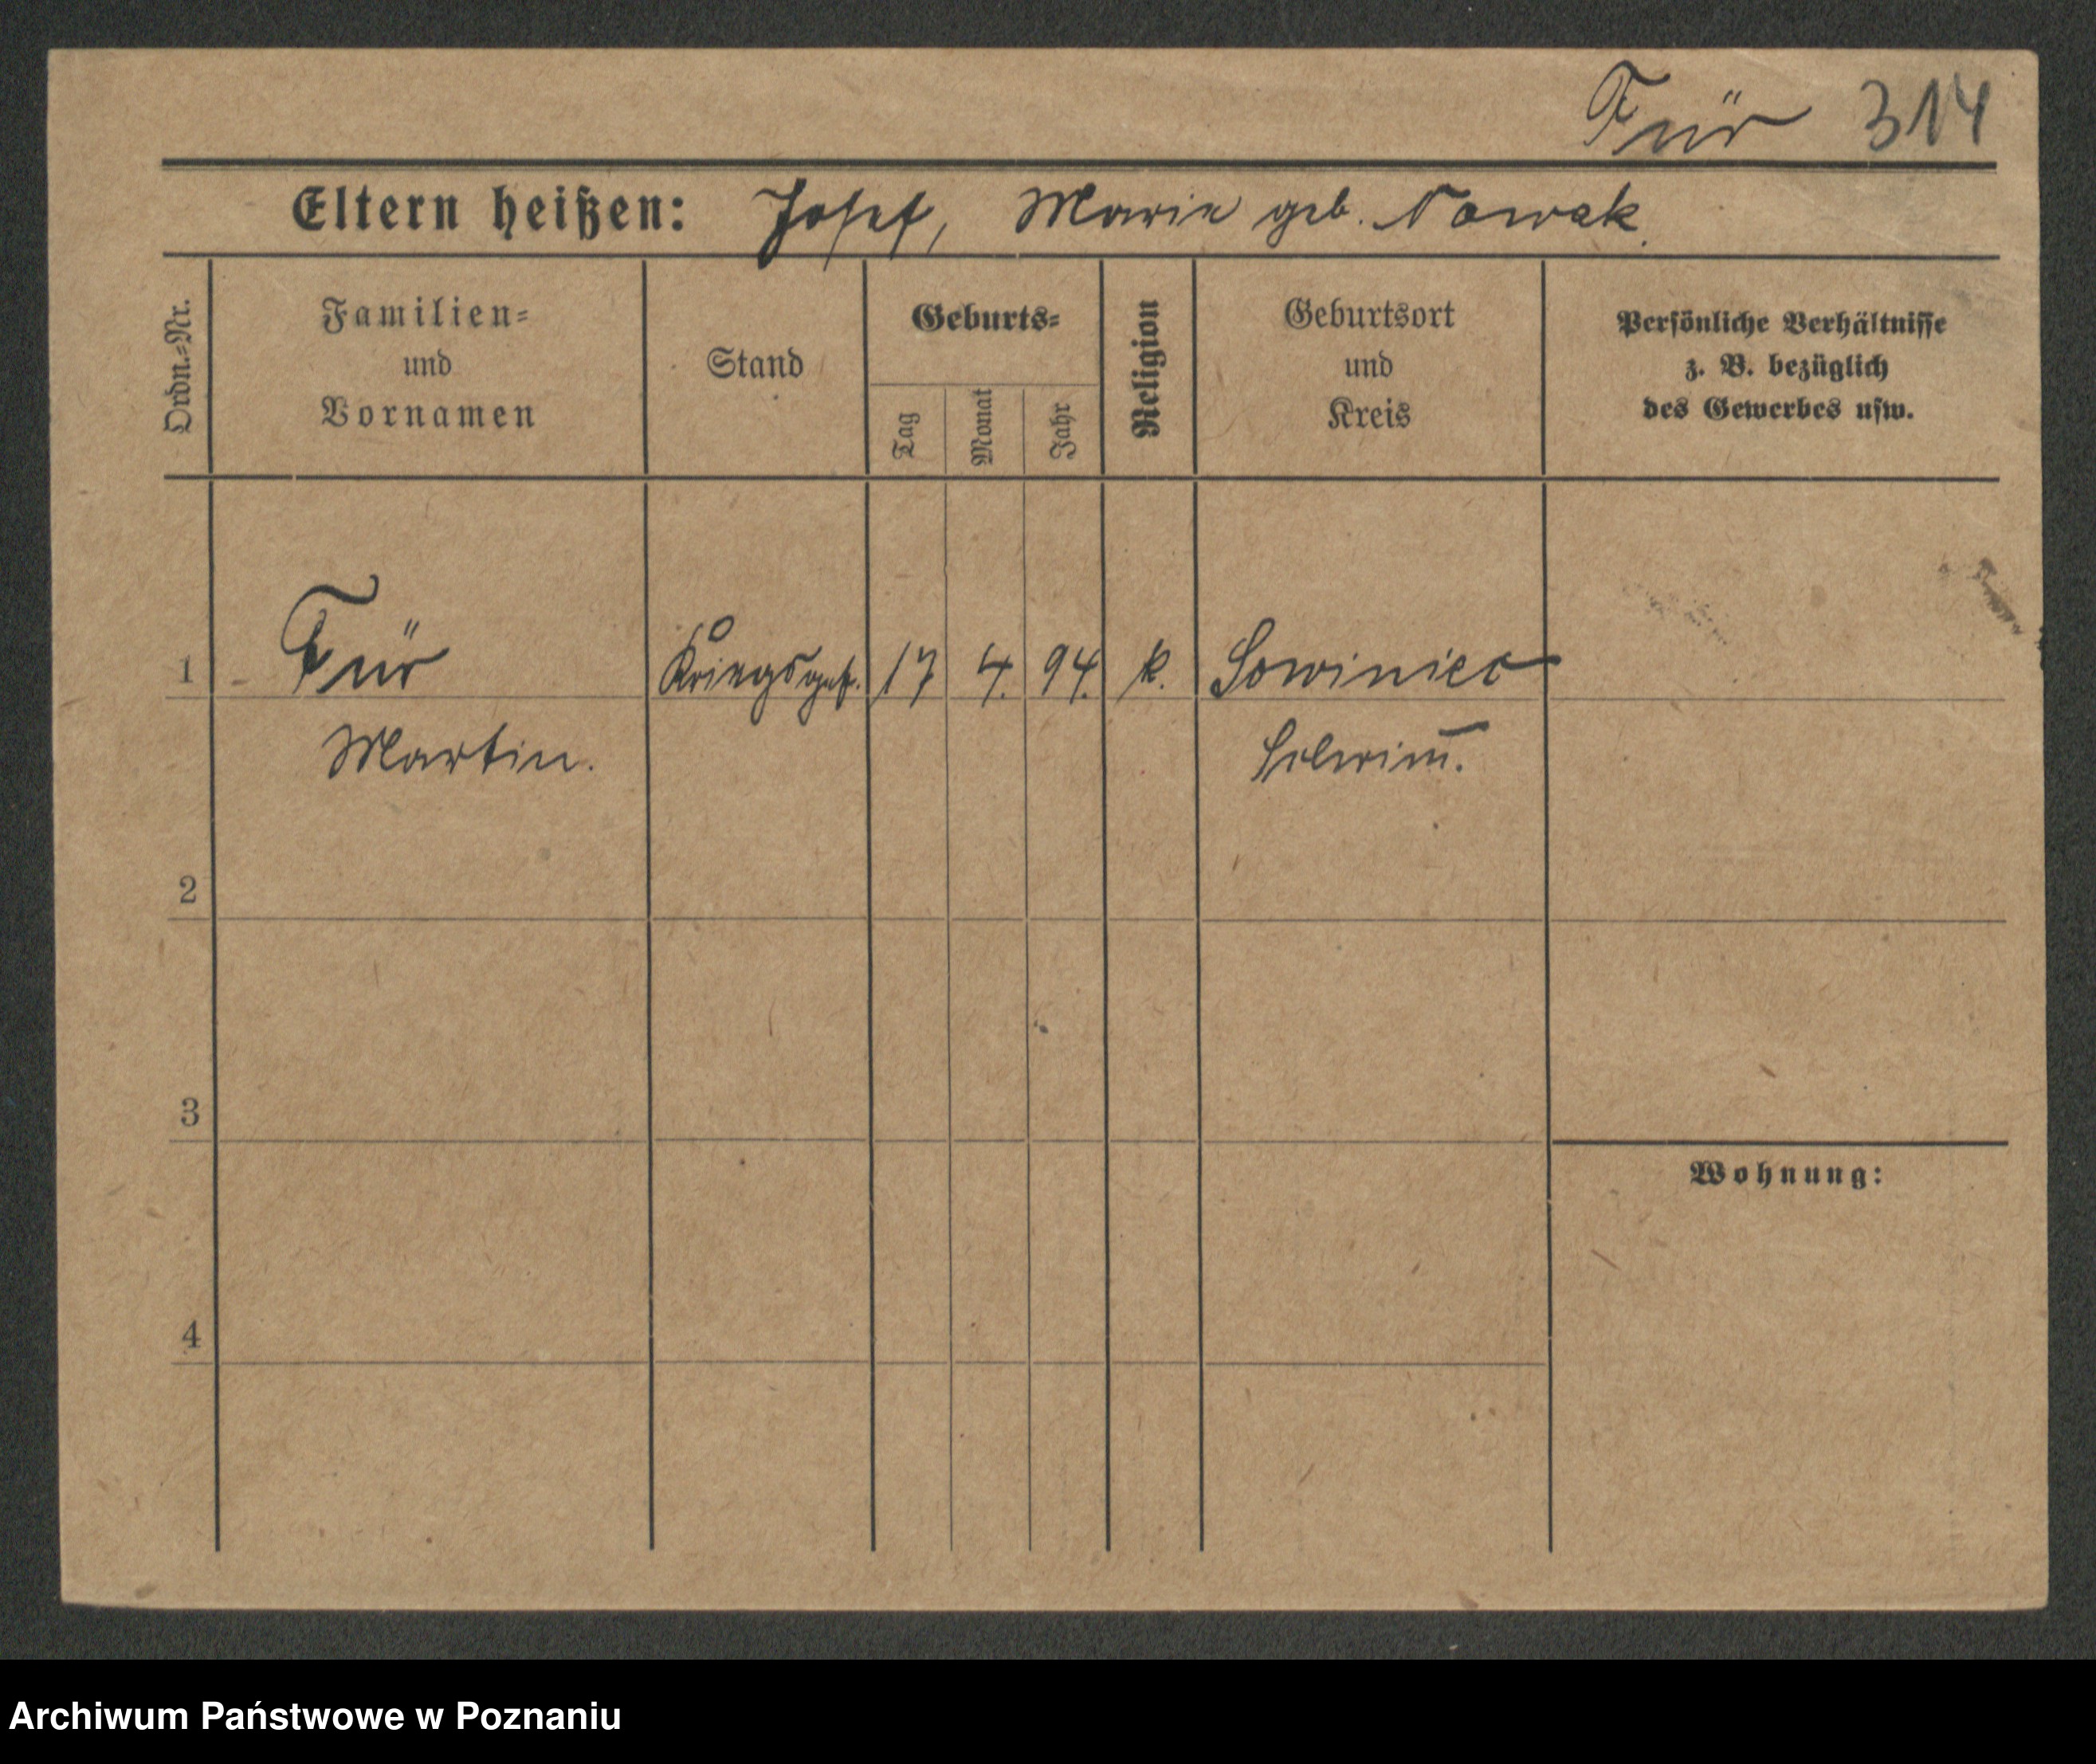 Für 314
Eltern heißen: Josef, Marie geb. Nowak.
Ordn.-Nr.
Familien-
und
Vornamen
Stand
Geburts-
Tag
Monat
Jahr
Religion
Geburtsort
und
Kreis
Persönliche Verhältnisse
z. B. bezüglich
des Gewerbes usw.
1 Für Kriegsgef. 17 4. 94. k. Sowiniec
Martin. Schrim̅.
2
3
Wohnung:
4
Archiwum Państwowe w Poznaniu